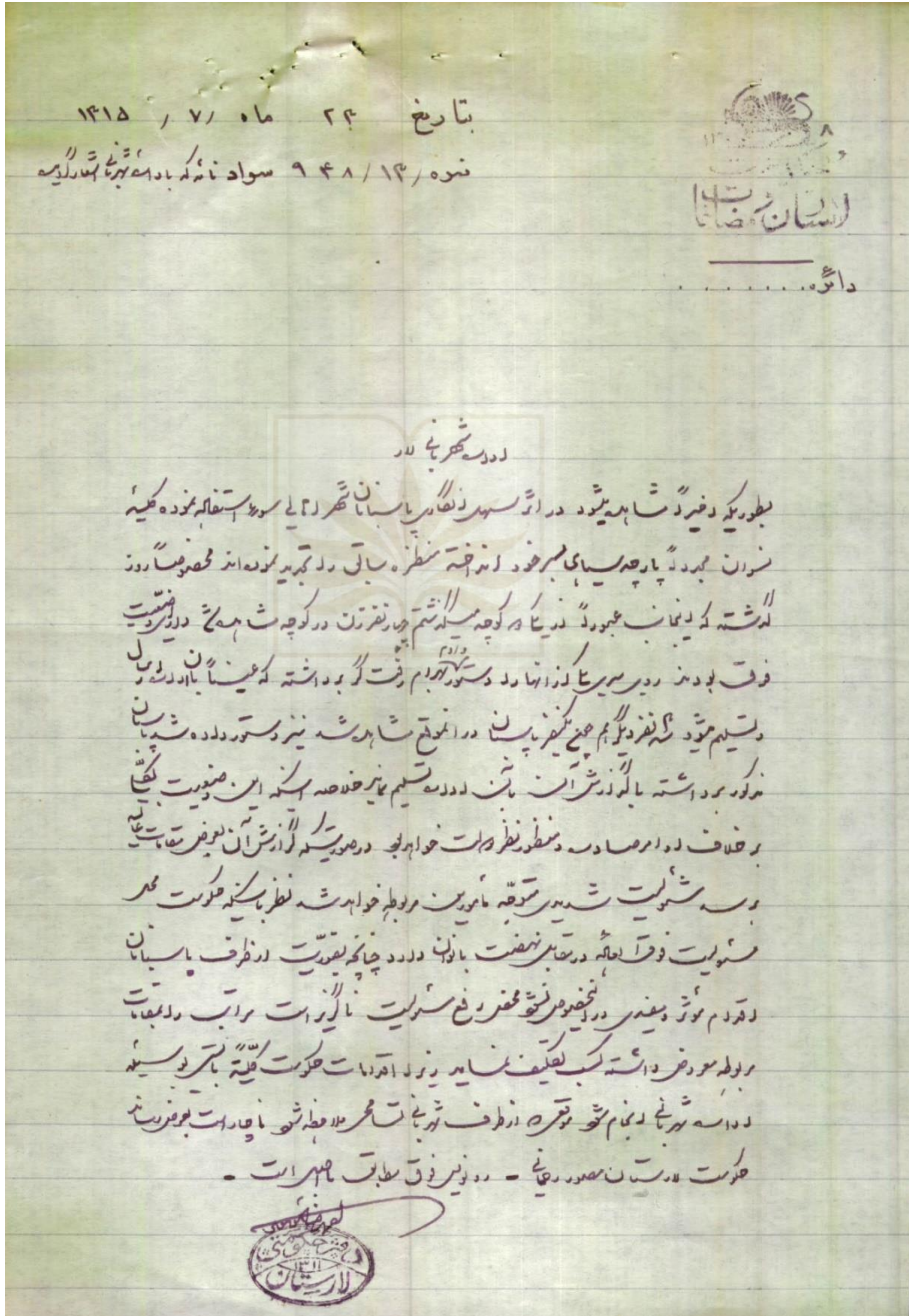 بتاریخ ۲۴ ماه ۷ ر ۱۳۱۵
نمره ۹۴۸/۱۳ سواد نامه که باداره شهربانی
لارستان و مضافات
دائره........
اداره شهربانی لار
بطوریکه اخیراً مشاهده میشود در اثر سهل انگاری پاسبانان شهر اهالی سوء استفاده نموده کلیه
نسوان مجدداً پارچه سیاهی بسر خود انداخته منظره سابق را تجدید نموده‌اند مخصوصاً روز
گذشته که اینجانب عبوراً از کوچه میگذشتم چهار نفر زن در کوچه مشاهده دارای وضعیت
فوق بودند روی سری یکی از آنها را دستور دادم گرفت برداشته که عیناً باداره
تسلیم میشود سه نفر دیگر هم یکنفر پاسبان در آن موقع مشاهده شد نیز دستور داده شد پاسبان
مذکور برداشته با گزارش آن بآن اداره تسلیم نماید خلاصه اینکه این وضعیت
بر خلاف اوامر صادره و منظور نظر دولت خواهد بود در صورتیکه گزارش آن بعرض مقامات عالیه
برسد مسئولیت شدیدی متوجه مأمورین مربوطه خواهد شد نظر باینکه حکومت محل
مسئولیت فوق‌العاده در مقابل نهضت بانوان دارد چنانچه بفوریت از طرف پاسبانان
اقدام مؤثر و مفیدی در اینخصوص نشود محض رفع مسئولیت ناگزیر است مراتب را بمقامات
مربوطه معروض داشته کسب تکلیف نماید زیرا اقدامات حکومت کلیةً بایستی بوسیله
اداره شهربانی انجام شود موقعی که از طرف شهربانی تسامحی ملاحظه شود ناچار است بعرض برساند
حکومت لارستان منصور رحمانی - رونویس فوق مطابق با اصل است -
دفتر حکومتی
۱۳۱۱
لارستان